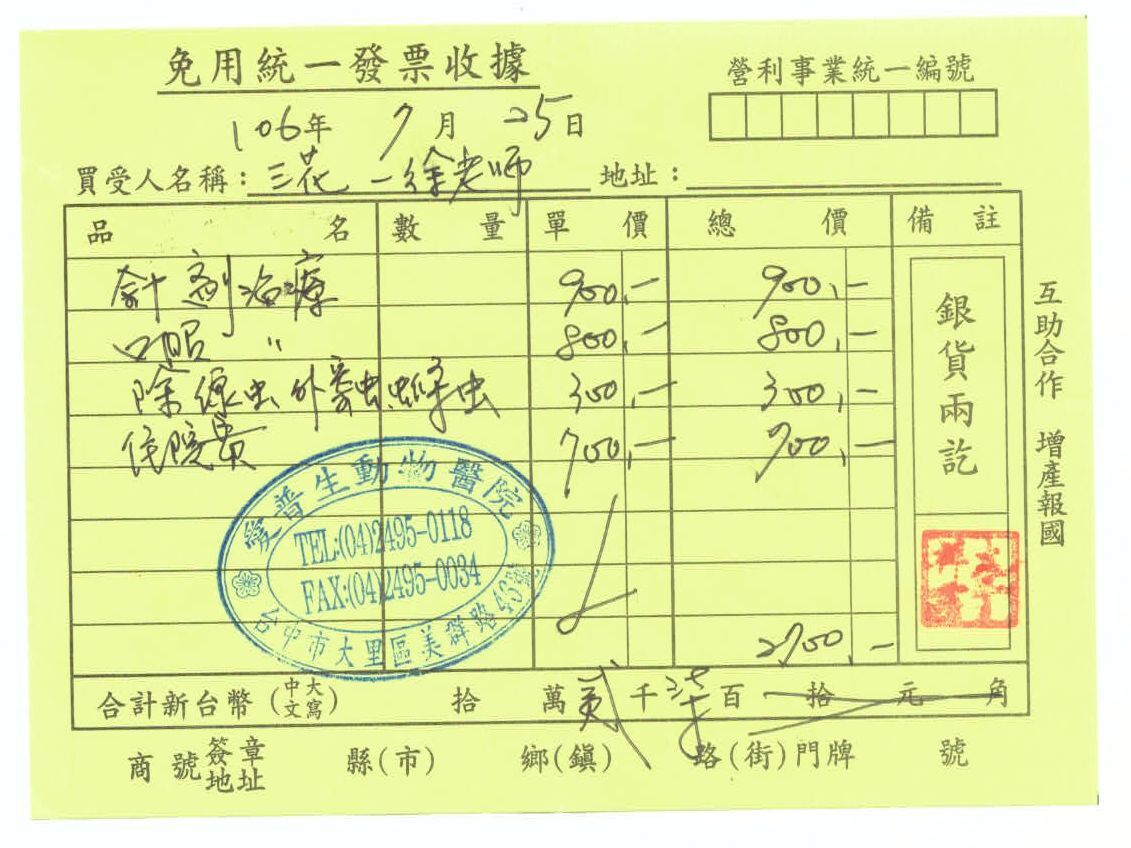 免用統一發票收據
營利事業統一編號
106年 7月 25日
買受人名稱：三花 — 徐老師 地址：
品名 數量 單價 總價 備註
針劑治療 900,— 900,—
口服 〃 800,— 800,—
除線虫外寄虫蜱虫 300,— 300,—
住院費 700,— 700,—
2700,—
銀貨兩訖
互助合作 增產報國
愛普生動物醫院
TEL:(04)2495-0118
FAX:(04)2495-0034
台中市大里區美群路43號
合計新台幣(中文大寫) 拾 萬 貳 千 柒 百 拾 元 角
商號簽章地址 縣(市) 鄉(鎮) 路(街)門牌 號